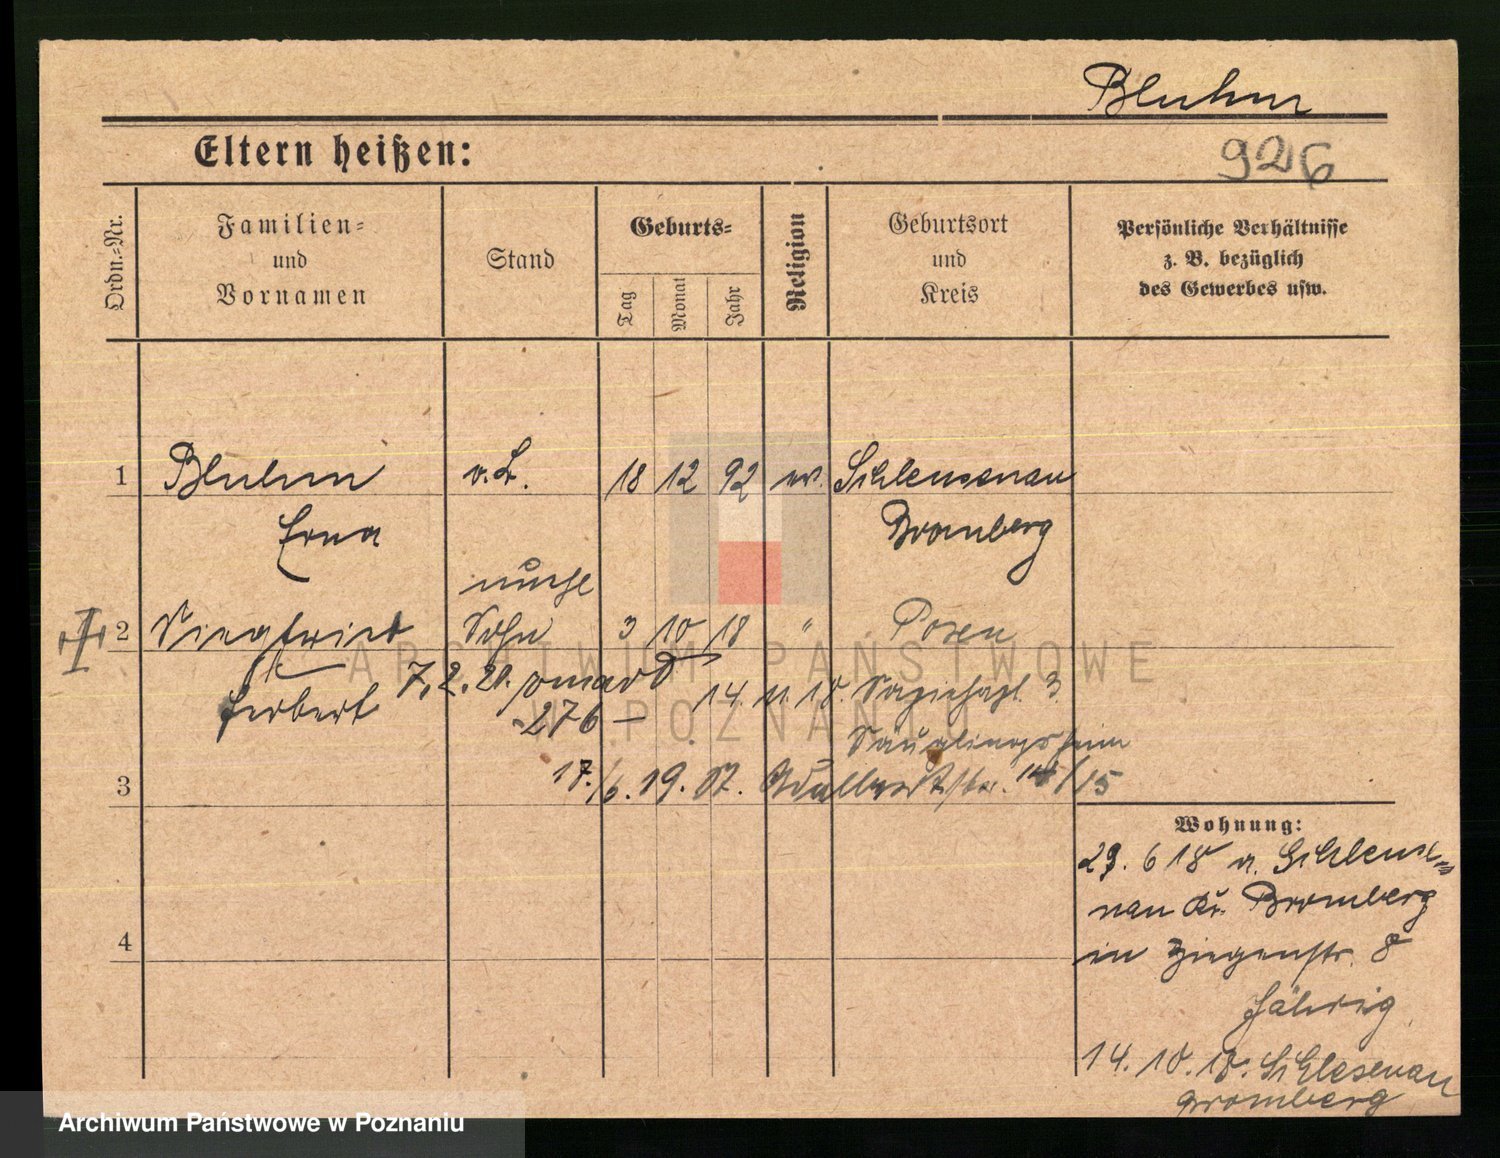 Bluhm
Eltern heißen:
926
Ordn.-Nr.
Familien-
und
Vornamen
Stand
Geburts-
Tag
Monat
Jahr
Religion
Geburtsort
und
Kreis
Persönliche Verhältnisse
z. B. bezüglich
des Gewerbes usw.
1 Bluhm 18 12 92 ev. Schleusenau
Erna Bromberg
2 Siegfried Sohn 3 10 18 " Posen
Herbert 7.2.20.
276 –
14. 11. 18. 3
Säuglingsheim
3 17./6. 19. 15
Wohnung:
29. 6 18 a. Schleuse-
nau Kr. Bromberg
in Ziegenstr. 8
Jährig
14. 10. 18. Schlesenau
Bromberg
4
ARCHIWUM PAŃSTWOWE
W POZNANIU
Archiwum Państwowe w Poznaniu